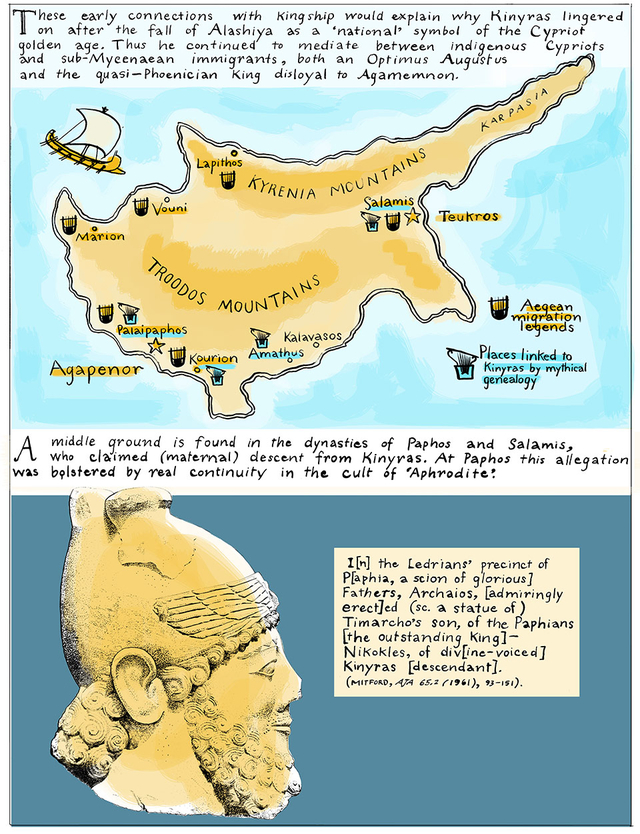 These early connections with kingship would explain why Kinyras lingered
on after the fall of Alashiya as a 'national' symbol of the Cypriot
golden age. Thus he continued to mediate between indigenous Cypriots
and sub-Mycenaean immigrants, both an Optimus Augustus
and the quasi-Phoenician king disloyal to Agamemnon.
KARPASIA
Lapithos
KYRENIA MOUNTAINS
Salamis
Teukros
Vouni
Marion
TROODOS MOUNTAINS
Aegean
migration
legends
Palaipaphos
Kalavasos
Kourion
Amathus
Agapenor
Places linked to
Kinyras by mythical
genealogy
A middle ground is found in the dynasties of Paphos and Salamis,
who claimed (maternal) descent from Kinyras. At Paphos this allegation
was bolstered by real continuity in the cult of 'Aphrodite'.
I[n] the Ledrians' precinct of
P[aphia, a scion of glorious]
Fathers, Archaios, [admiringly
erect]ed (sc. a statue of)
Timarcho's son, of the Paphians
[the outstanding king]—
Nikokles, of div[ine-voiced]
Kinyras [descendant].
(MITFORD, AJA 65.2 (1961), 93-151).